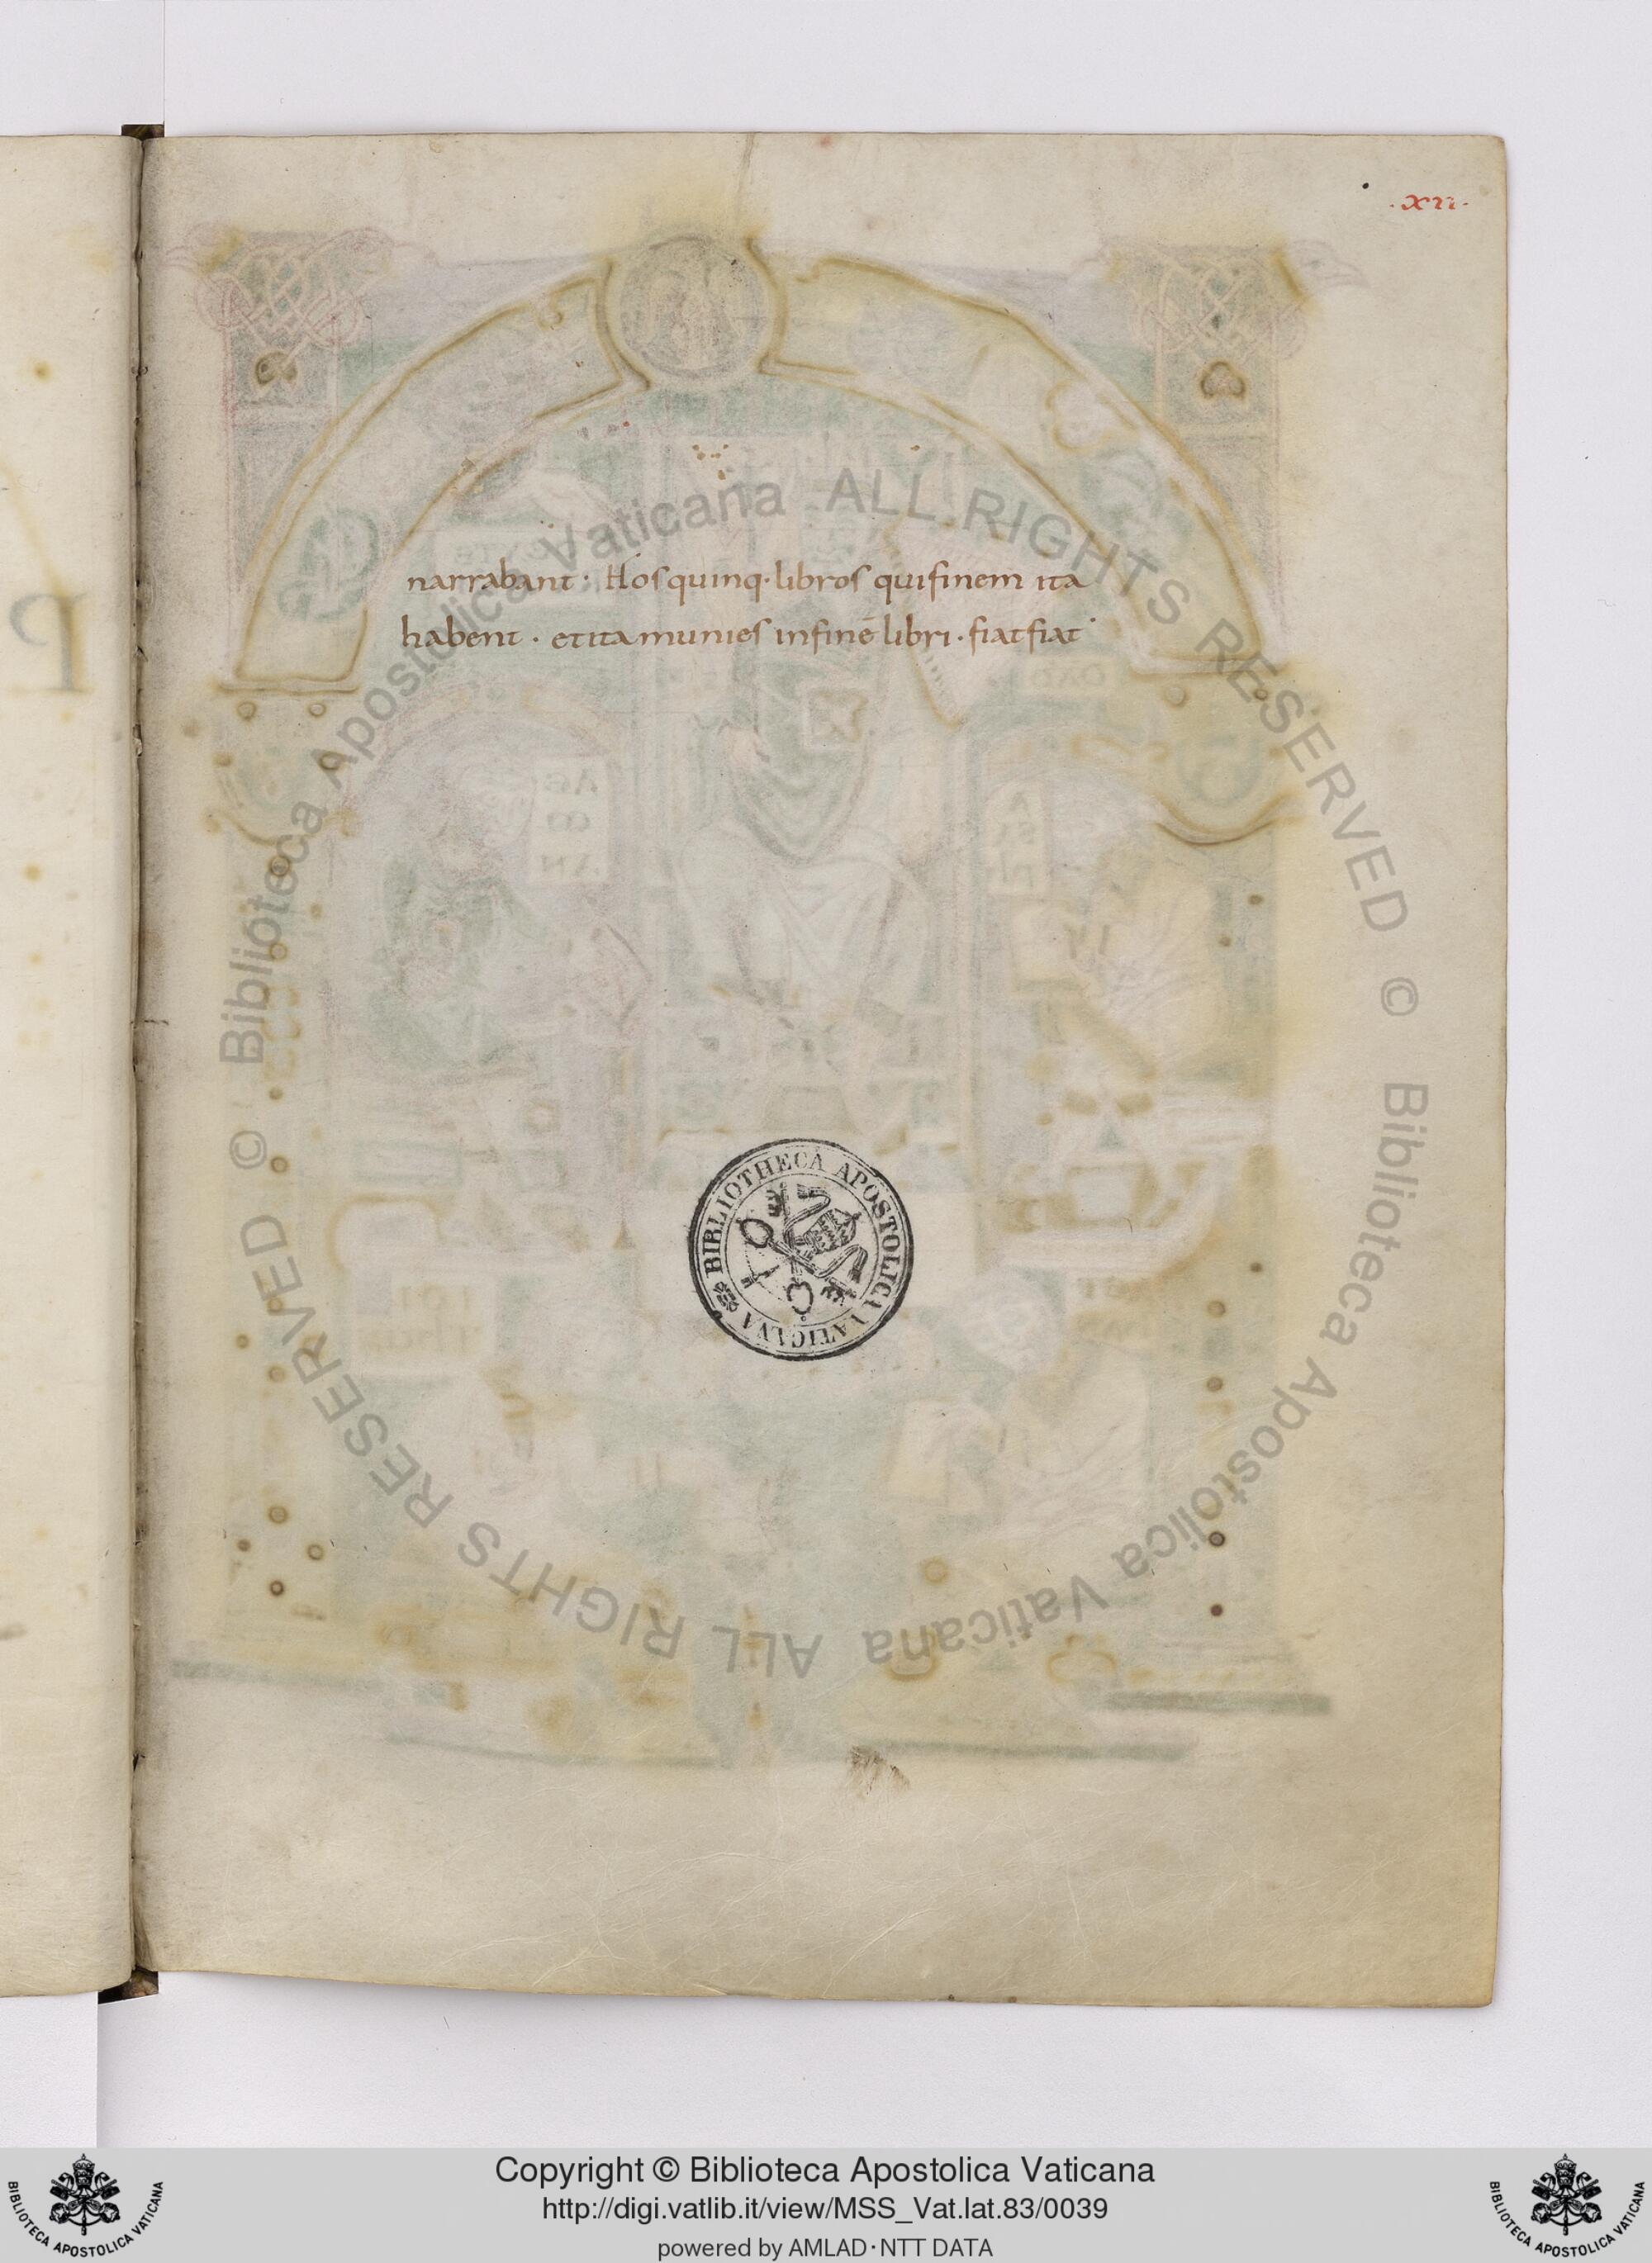 ·xii·
narrabant· Hos quinq· libros qui finem ita
habent · et ita munies in finē libri · fiat fiat·
BIBLIOTHECA APOSTOLICA VATICANA
© Biblioteca Apostolica Vaticana ALL RIGHTS RESERVED
© Biblioteca Apostolica Vaticana ALL RIGHTS RESERVED
Copyright © Biblioteca Apostolica Vaticana
http://digi.vatlib.it/view/MSS_Vat.lat.83/0039
powered by AMLAD·NTT DATA
BIBLIOTECA APOSTOLICA VATICANA
BIBLIOTECA APOSTOLICA VATICANA